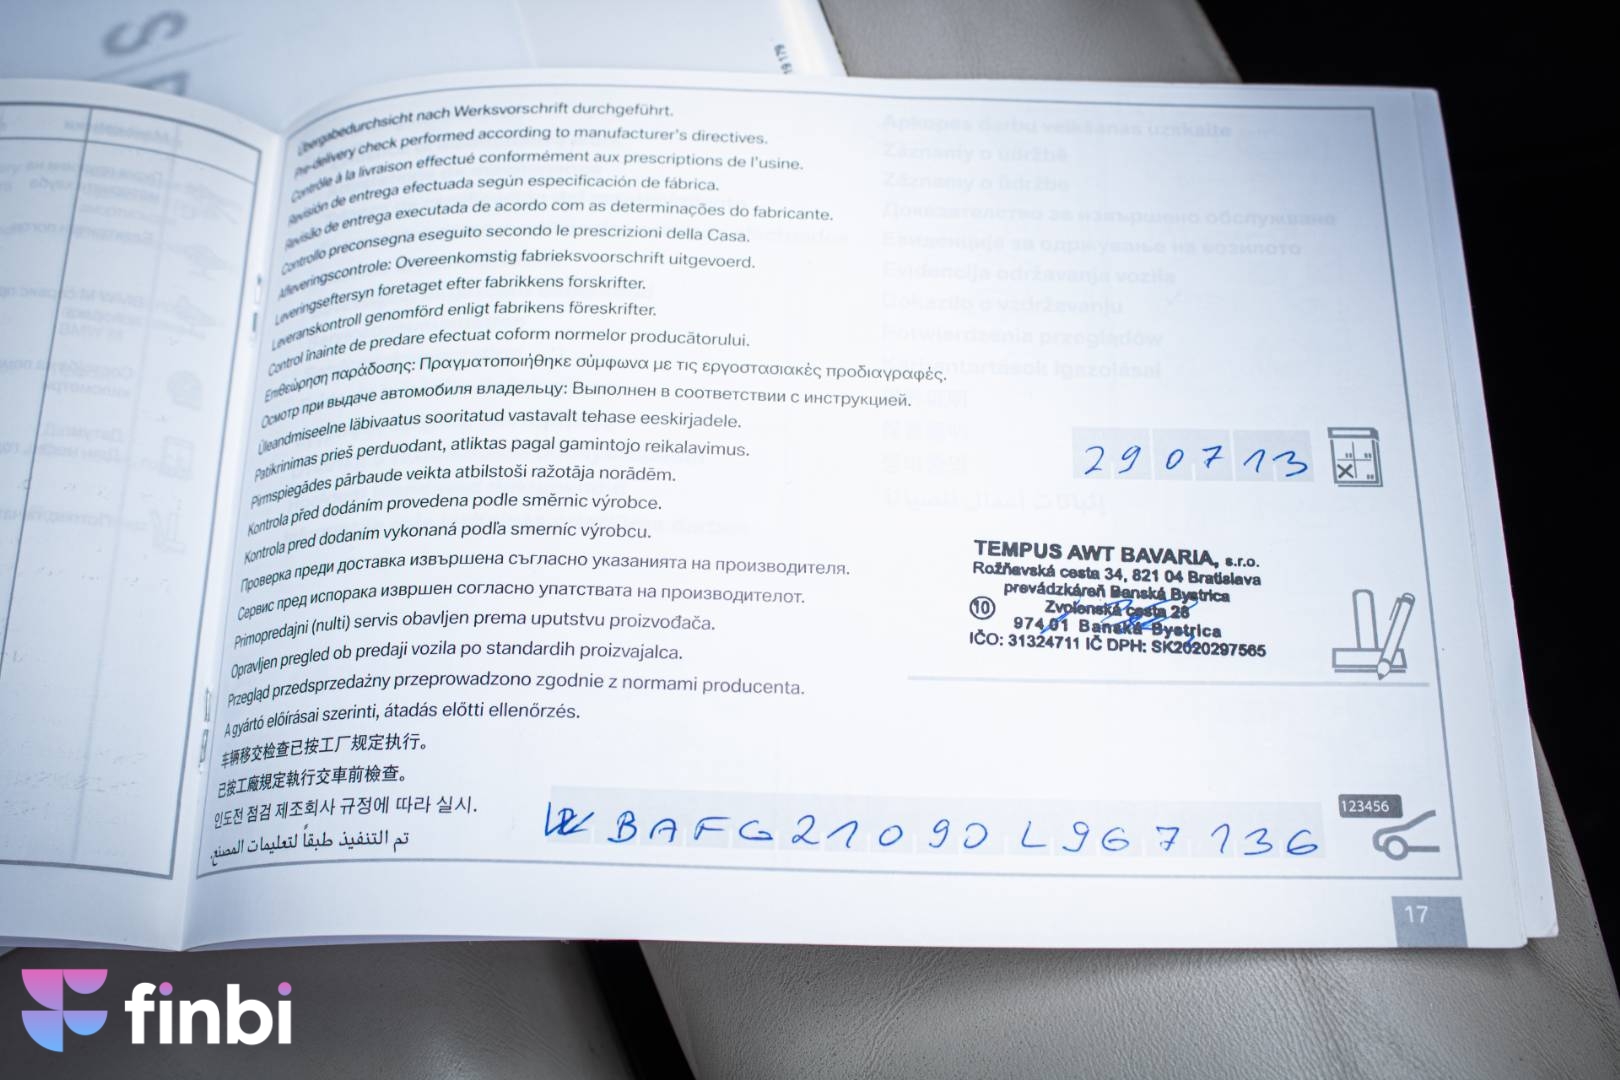 Übergabedurchsicht nach Werksvorschrift durchgeführt.
Pre-delivery check performed according to manufacturer's directives.
Contrôle à la livraison effectué conformément aux prescriptions de l'usine.
Revisión de entrega efectuada según especificación de fábrica.
Revisão de entrega executada de acordo com as determinações do fabricante.
Controllo preconsegna eseguito secondo le prescrizioni della Casa.
Afleveringscontrole: Overeenkomstig fabrieksvoorschrift uitgevoerd.
Leveringseftersyn foretaget efter fabrikkens forskrifter.
Leveranskontroll genomförd enligt fabrikens föreskrifter.
Control înainte de predare efectuat coform normelor producătorului.
Επιθεώρηση παράδοσης: Πραγματοποιήθηκε σύμφωνα με τις εργοστασιακές προδιαγραφές.
Осмотр при выдаче автомобиля владельцу: Выполнен в соответствии с инструкцией.
Üleandmiseelne läbivaatus sooritatud vastavalt tehase eeskirjadele.
Patikrinimas prieš perduodant, atliktas pagal gamintojo reikalavimus.
Pirmspiegādes pārbaude veikta atbilstoši ražotāja norādēm.
Kontrola před dodáním provedena podle směrnic výrobce.
Kontrola pred dodaním vykonaná podľa smerníc výrobcu.
Проверка преди доставка извършена съгласно указанията на производителя.
Сервис пред испорака извршен согласно упатствата на производителот.
Primopredajni (nulti) servis obavljen prema uputstvu proizvođača.
Opravljen pregled ob predaji vozila po standardih proizvajalca.
Przegląd przedsprzedażny przeprowadzono zgodnie z normami producenta.
A gyártó előírásai szerinti, átadás előtti ellenőrzés.
车辆移交检查已按工厂规定执行。
已按工廠規定執行交車前檢查。
인도전 점검 제조회사 규정에 따라 실시.
تم التنفيذ طبقاً لتعليمات المصنع.
290713
TEMPUS AWT BAVARIA, s.r.o.
Rožňavská cesta 34, 821 04 Bratislava
prevádzkáreň Banská Bystrica
10 Zvolenská cesta 28
974 01 Banská Bystrica
IČO: 31324711 IČ DPH: SK2020297565
123456
WBAFG21090L967136
17
finbi